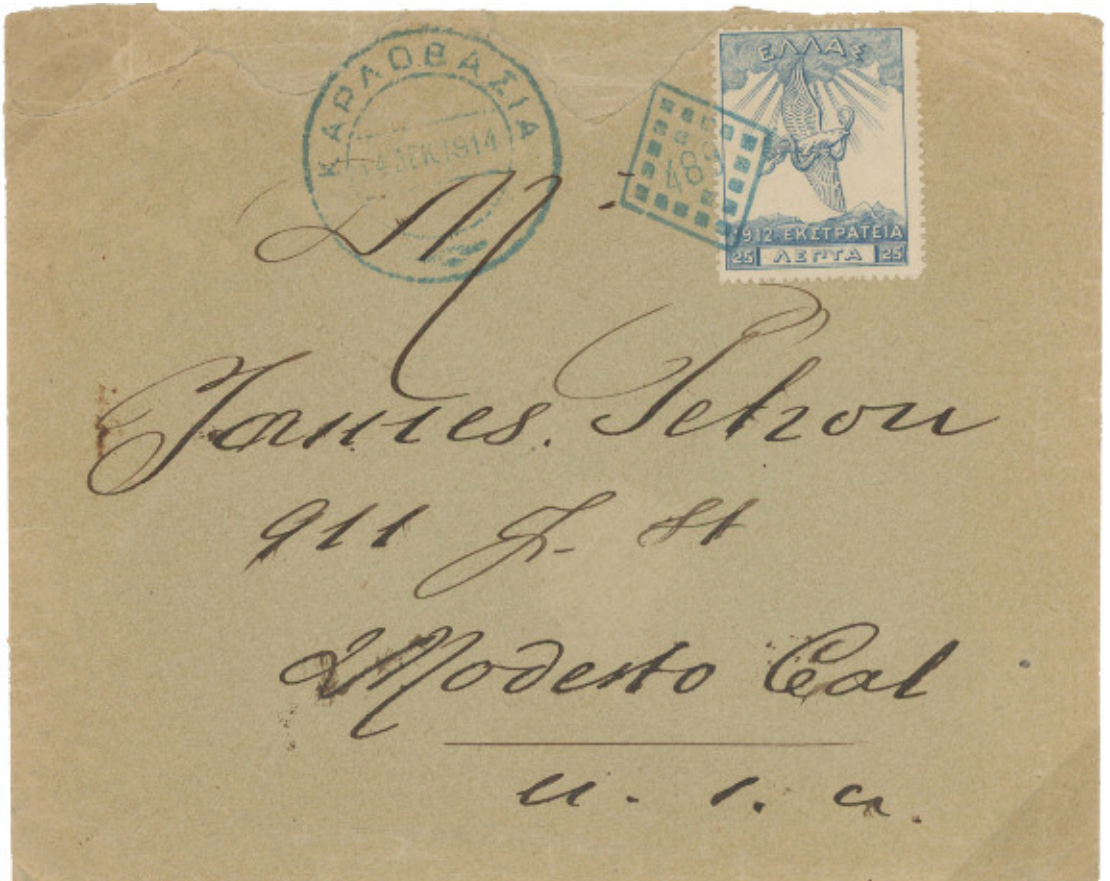 ΚΑΡΛΟΒΑΣΙΑ
14 ΔΕΚ 1914
ΕΛΛΑΣ
1912 ΕΚΣΤΡΑΤΕΙΑ
25 ΛΕΠΤΑ 25
M
James. Petrou
911 J. St
Modesto Cal
u. s. a.